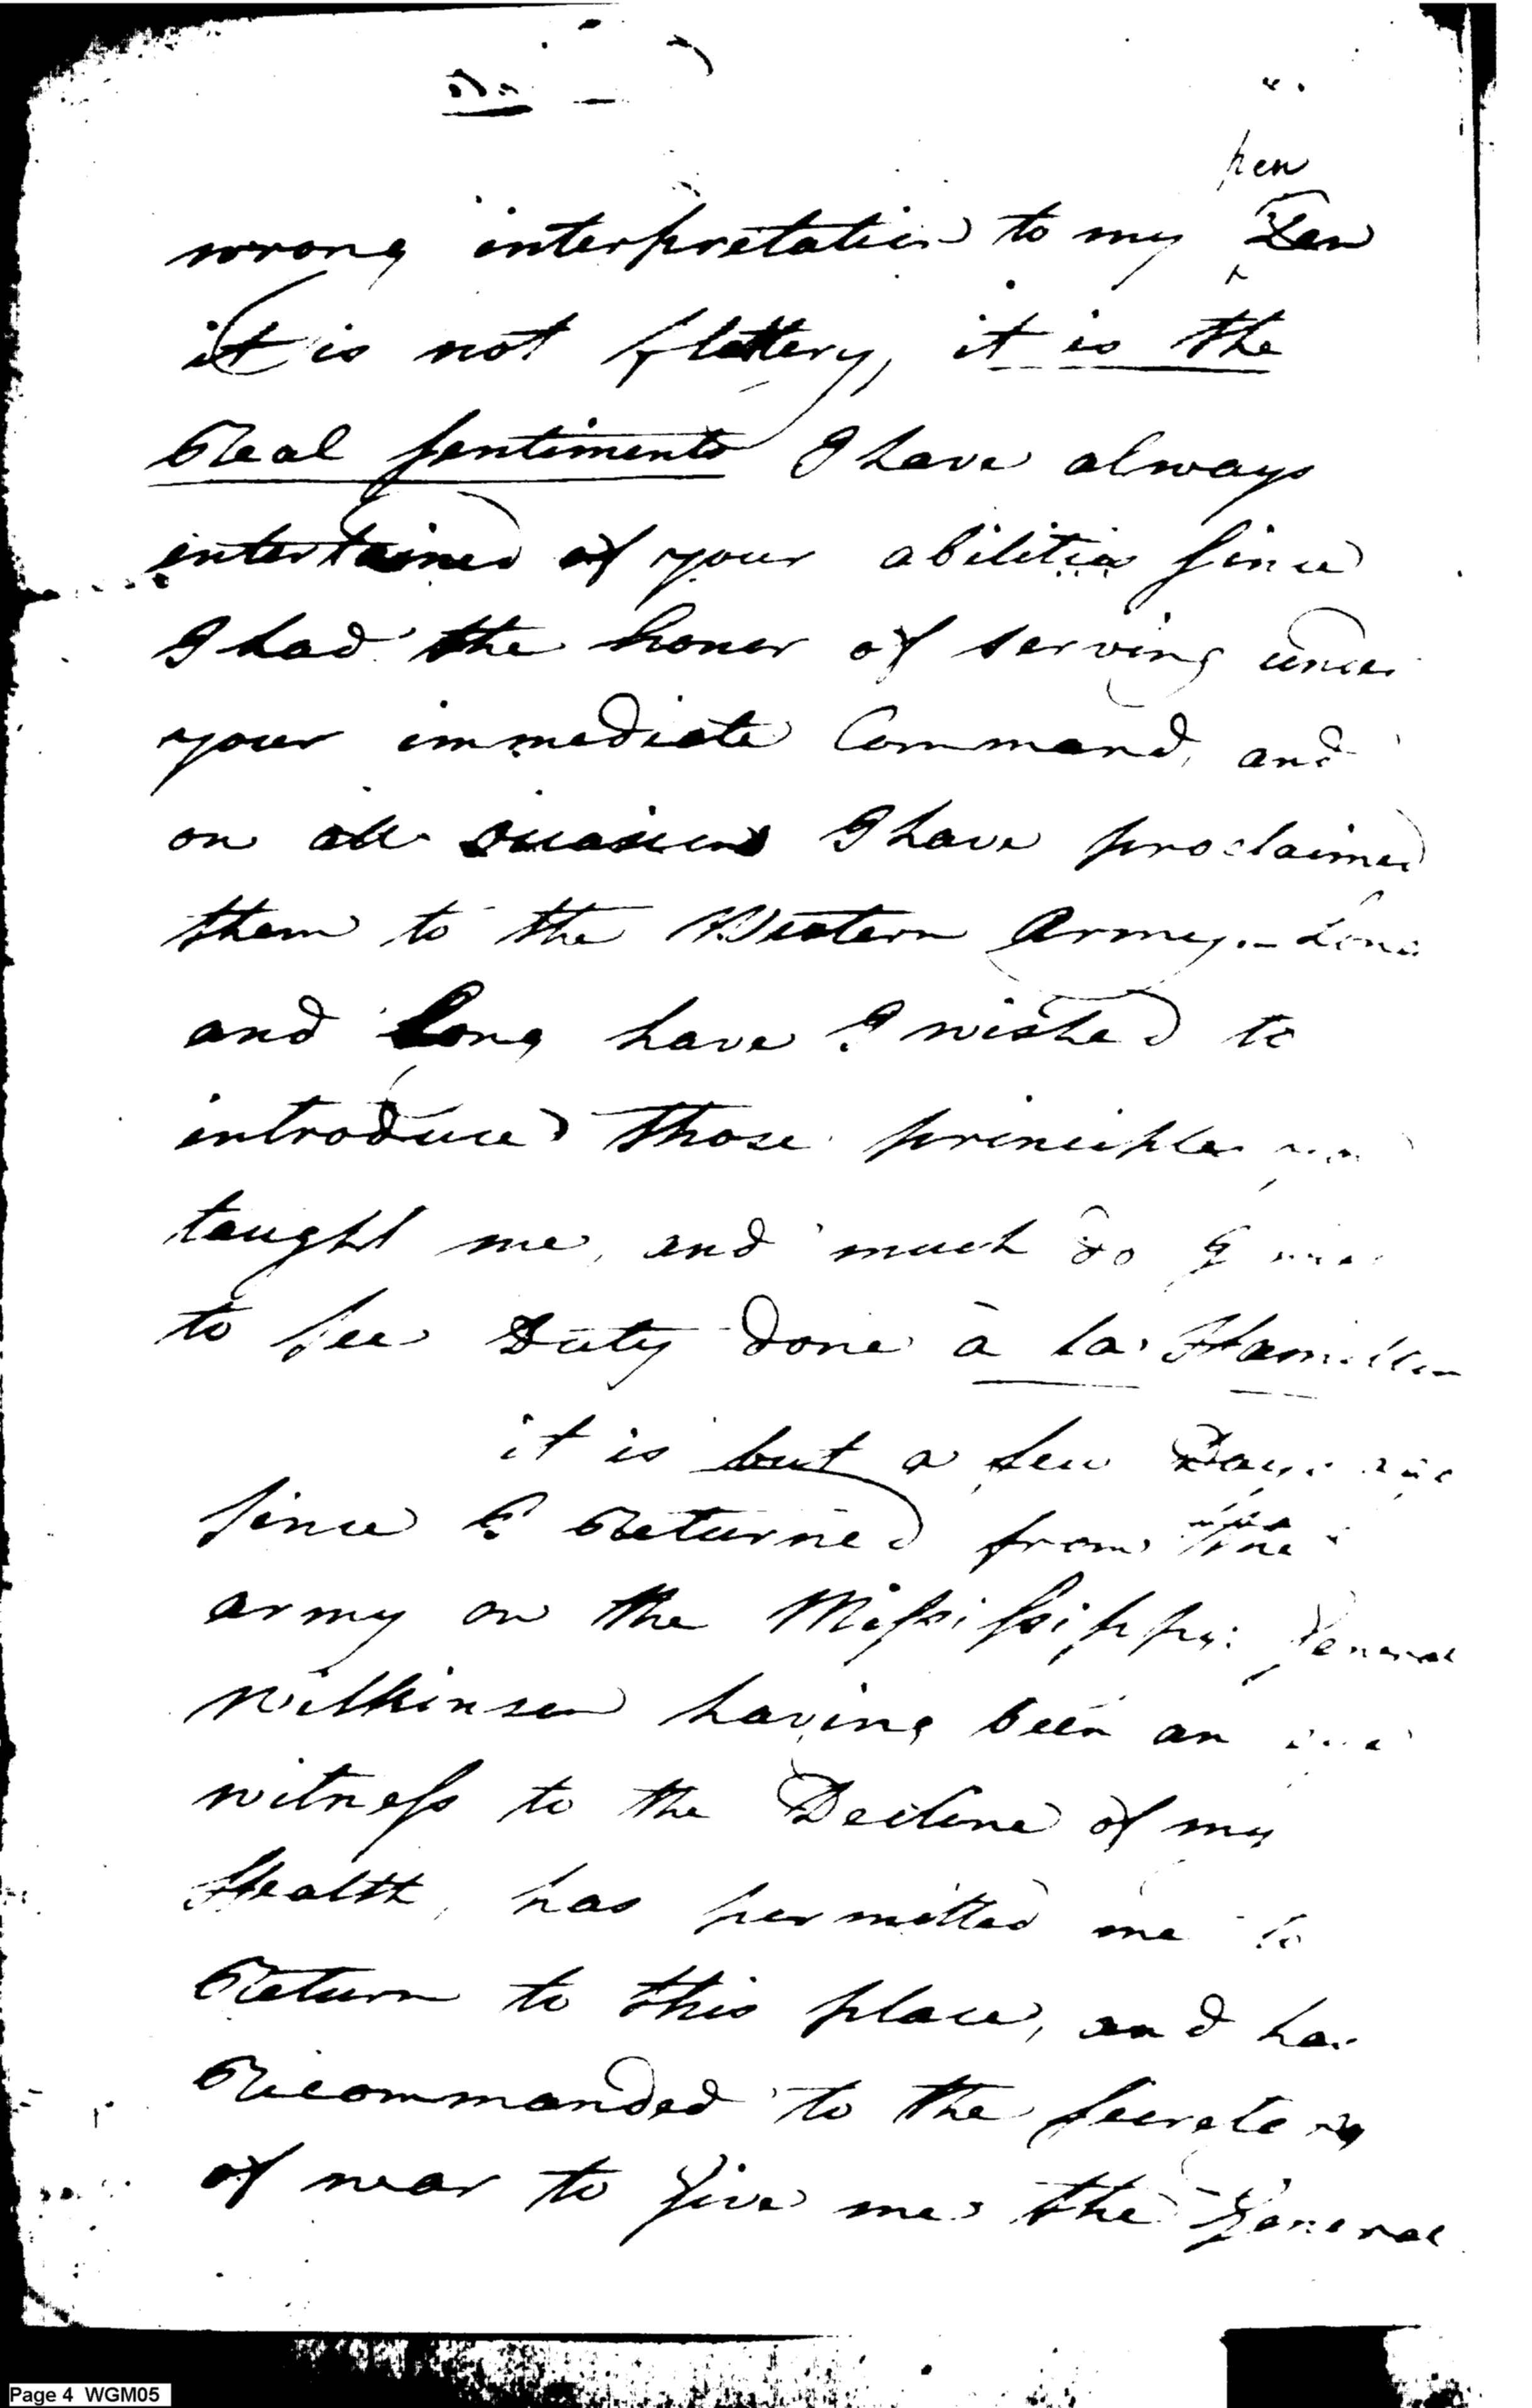 pen
wrong interpretation to my Pen
it is not flattery, it is the
Real sentiments I have always
entertained of your abilities since
I had the honor of serving under
your immediate Command, and
on all occasions I have proclaimed
them to the Western Army. – Long
and long have I wished to
introduce those principles you
taught me, and much do I
to see Duty done à la Hamilton
it is but a few Days ago
since I Returned from the
army on the Mississippi General
Wilkinson having been an eye
witness to the Decline of my
Health, has permitted me to
Return to this place, and has
Recommanded to the Secretary
of war to Give me the General
Page 4 WGM05